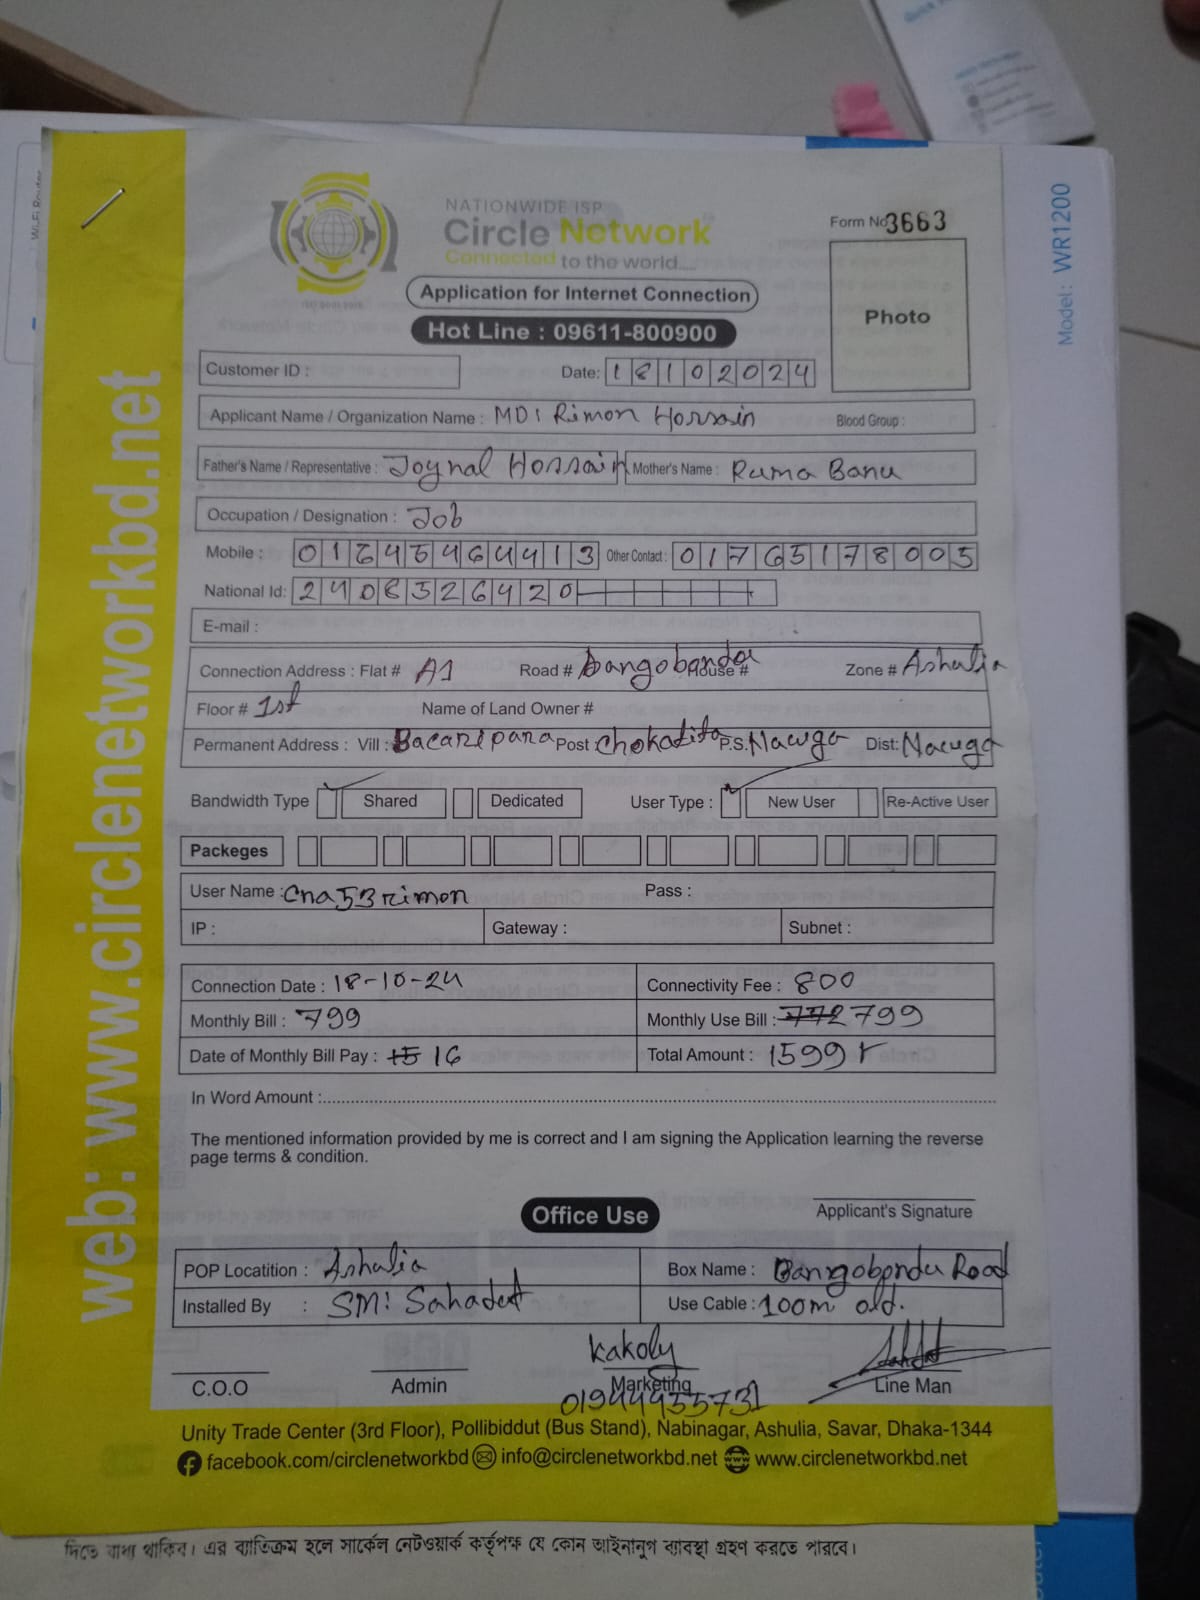 NATIONWIDE ISP
Circle Network
Connected to the world....
Form No 3663
Application for Internet Connection
Hot Line : 09611-800900
Photo
Customer ID :
Date: 18102024
Applicant Name / Organization Name : MD: Rimon Hossain Blood Group :
Father's Name / Representative : Joynal Hossain Mother's Name : Ruma Banu
Occupation / Designation : Job
Mobile : 01645464413 Other Contact : 01765178005
National Id: 2408326420
E-mail :
Connection Address : Flat # A1 Road # Bangobandu House # Zone # Ashulia
Floor # 1st Name of Land Owner #
Permanent Address : Vill : Post P.S. Dist:
Bandwidth Type Shared Dedicated User Type : New User Re-Active User
Packeges
User Name : cna53rimon Pass :
IP : Gateway : Subnet :
Connection Date : 18-10-24 Connectivity Fee : 800
Monthly Bill : 799 Monthly Use Bill : 772 799
Date of Monthly Bill Pay : 15 16 Total Amount : 1599
In Word Amount :
The mentioned information provided by me is correct and I am signing the Application learning the reverse
page terms & condition.
Office Use
Applicant's Signature
POP Locatition : Ashulia Box Name : Bangobondu Road
Installed By : SM: Sahadat Use Cable : 100m old.
Kakoly
C.O.O Admin Marketing Line Man
01944455731
Unity Trade Center (3rd Floor), Pollibiddut (Bus Stand), Nabinagar, Ashulia, Savar, Dhaka-1344
facebook.com/circlenetworkbd info@circlenetworkbd.net www.circlenetworkbd.net
web: www.circlenetworkbd.net
Model: WR1200
দিতে বাধ্য থাকিব। এর ব্যতিক্রম হলে সার্কেল নেটওয়ার্ক কর্তৃপক্ষ যে কোন আইনানুগ ব্যবস্থা গ্রহণ করতে পারবে।